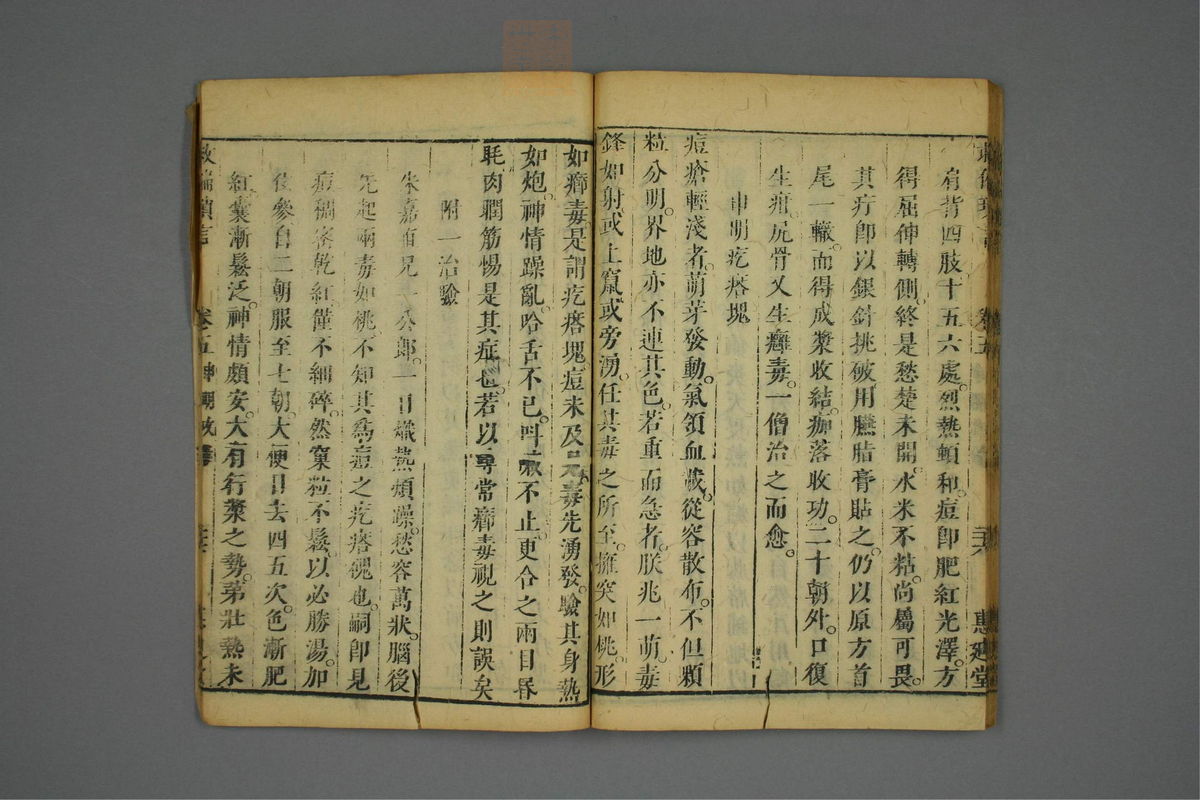 肩背四肢十五六處。烈熱頓和。痘卽肥紅光澤。方
得屈伸轉側。終是愁楚未開。水米不粘。尚屬可畏。
其疔卽以銀針挑破用臙脂膏貼之。仍以原方首
尾一轍。而得成漿收結。痂落收功。二十朝外。口復
生疳。尻骨又生癰毒。一僧治之而愈。
申明疙瘩塊
痘瘡輕淺者。萌芽發動。氣領血載。從容散布。不但顆
粒分明。界地亦不連其色。若重而急者。朕兆一萌。毒
鋒如射。或上竄或旁湧。任其毒之所至。擁突如桃。形
卷五
惠迪堂
如癤毒是謂疙瘩塊痘未及見。毒先湧發。驗其身熱
如炮。神情躁亂。哈舌不已。呌不止。更令之兩目昏
眊。肉瞤筋惕是其症也。若以尋常癤毒視之則誤矣
附一治驗
朱嘉兄一公郞。一日熾熱煩躁。愁容萬狀。腦後
先起兩毒如桃。不知其爲痘之疙瘩塊也。嗣卽見
痘稠密乾紅。僅不細碎。然窠粒不鬆。以必勝湯。加
參自二朝服至七朝。大便日去四五次。色漸肥
紅。囊漸鬆泛。神情頗安。大有行漿之勢。第壯熱未
救偏瑣言
卷五